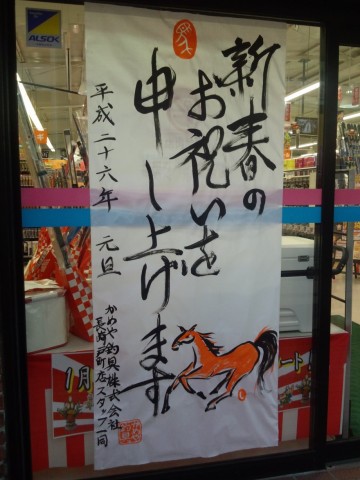 新春の
お祝いを
申し上げます
平成二十六年 元旦
かめや釣具株式会社
長府店スタッフ一同
ALSOK
1月
ート!